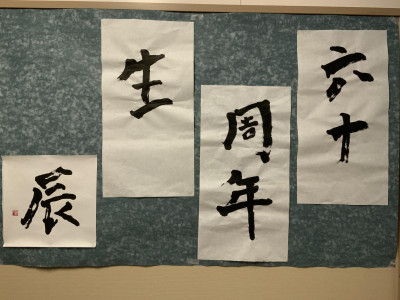 六十
周年
生
辰